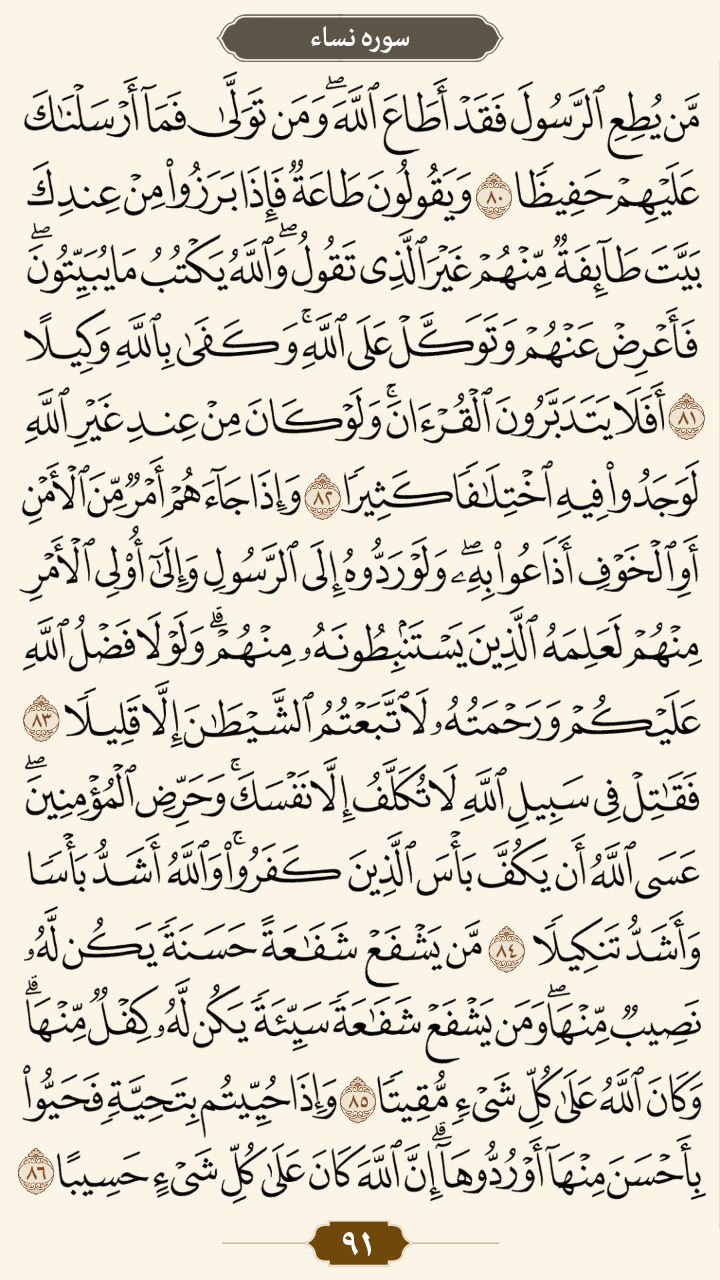 سوره نساء
مَّن يُطِعِ ٱلرَّسُولَ فَقَدۡ أَطَاعَ ٱللَّهَۖ وَمَن تَوَلَّىٰ فَمَآ أَرۡسَلۡنَٰكَ
عَلَيۡهِمۡ حَفِيظٗا ٨٠ وَيَقُولُونَ طَاعَةٞ فَإِذَا بَرَزُواْ مِنۡ عِندِكَ
بَيَّتَ طَآئِفَةٞ مِّنۡهُمۡ غَيۡرَ ٱلَّذِي تَقُولُۖ وَٱللَّهُ يَكۡتُبُ مَا يُبَيِّتُونَۖ
فَأَعۡرِضۡ عَنۡهُمۡ وَتَوَكَّلۡ عَلَى ٱللَّهِۚ وَكَفَىٰ بِٱللَّهِ وَكِيلًا
٨١ أَفَلَا يَتَدَبَّرُونَ ٱلۡقُرۡءَانَۚ وَلَوۡ كَانَ مِنۡ عِندِ غَيۡرِ ٱللَّهِ
لَوَجَدُواْ فِيهِ ٱخۡتِلَٰفٗا كَثِيرٗا ٨٢ وَإِذَا جَآءَهُمۡ أَمۡرٞ مِّنَ ٱلۡأَمۡنِ
أَوِ ٱلۡخَوۡفِ أَذَاعُواْ بِهِۦۖ وَلَوۡ رَدُّوهُ إِلَى ٱلرَّسُولِ وَإِلَىٰٓ أُوْلِي ٱلۡأَمۡرِ
مِنۡهُمۡ لَعَلِمَهُ ٱلَّذِينَ يَسۡتَنۢبِطُونَهُۥ مِنۡهُمۡۗ وَلَوۡلَا فَضۡلُ ٱللَّهِ
عَلَيۡكُمۡ وَرَحۡمَتُهُۥ لَٱتَّبَعۡتُمُ ٱلشَّيۡطَٰنَ إِلَّا قَلِيلٗا ٨٣
فَقَٰتِلۡ فِي سَبِيلِ ٱللَّهِ لَا تُكَلَّفُ إِلَّا نَفۡسَكَۚ وَحَرِّضِ ٱلۡمُؤۡمِنِينَۖ
عَسَى ٱللَّهُ أَن يَكُفَّ بَأۡسَ ٱلَّذِينَ كَفَرُواْۚ وَٱللَّهُ أَشَدُّ بَأۡسٗا
وَأَشَدُّ تَنكِيلٗا ٨٤ مَّن يَشۡفَعۡ شَفَٰعَةً حَسَنَةٗ يَكُن لَّهُۥ
نَصِيبٞ مِّنۡهَاۖ وَمَن يَشۡفَعۡ شَفَٰعَةٗ سَيِّئَةٗ يَكُن لَّهُۥ كِفۡلٞ مِّنۡهَاۗ
وَكَانَ ٱللَّهُ عَلَىٰ كُلِّ شَيۡءٖ مُّقِيتٗا ٨٥ وَإِذَا حُيِّيتُم بِتَحِيَّةٖ فَحَيُّواْ
بِأَحۡسَنَ مِنۡهَآ أَوۡ رُدُّوهَآۗ إِنَّ ٱللَّهَ كَانَ عَلَىٰ كُلِّ شَيۡءٍ حَسِيبًا ٨٦
٩١